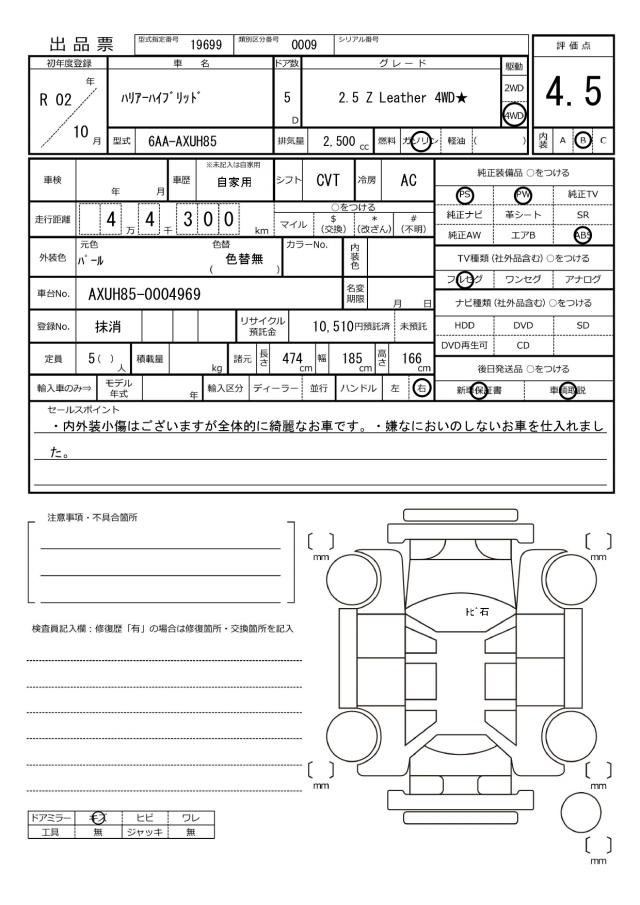 出品票 型式指定番号 19699 類別区分番号 0009 シリアル番号
評価点
初年度登録 車名 ドア数 グレード 駆動
R 02 年 10 月 ﾊﾘｱｰﾊｲﾌﾞﾘｯﾄﾞ 5 D 2.5 Z Leather 4WD★ 2WD 4WD
4.5
型式 6AA-AXUH85 排気量 2,500 cc 燃料 ガソリン 軽油 ( ) 内装 A B C
車検 年 月 車歴 ※未記入は自家用 自家用 シフト CVT 冷房 AC
純正装備品 ○をつける
PS PW 純正TV
純正ナビ 革シート SR
純正AW エアB ABS
走行距離 4 万 4 千 3 0 0 km ○をつける
マイル $ (交換) * (改ざん) # (不明)
外装色 元色 パール 色替 ( 色替無 ) カラーNo. 内装色
TV種類 (社外品含む) ○をつける
フルセグ ワンセグ アナログ
車台No. AXUH85-0004969 名変期限 月 日
ナビ種類 (社外品含む) ○をつける
登録No. 抹消 リサイクル預託金 10,510円預託済 未預託
HDD DVD SD
DVD再生可 CD
定員 5( ) 人 積載量 kg 諸元 長さ 474 cm 幅 185 cm 高さ 166 cm
後日発送品 ○をつける
輸入車のみ⇒ モデル年式 年 輸入区分 ディーラー 並行 ハンドル 左 右
新車保証書 車輌取説
セールスポイント
・内外装小傷はございますが全体的に綺麗なお車です。・嫌なにおいのしないお車を仕入れまし
た。
注意事項・不具合箇所
検査員記入欄：修復歴「有」の場合は修復箇所・交換箇所を記入
〔 〕 mm
〔 〕 mm
ﾄﾋﾞ石
〔 〕 mm
〔 〕 mm
〔 〕 mm
ドアミラー キズ ヒビ ワレ
工具 無 ジャッキ 無